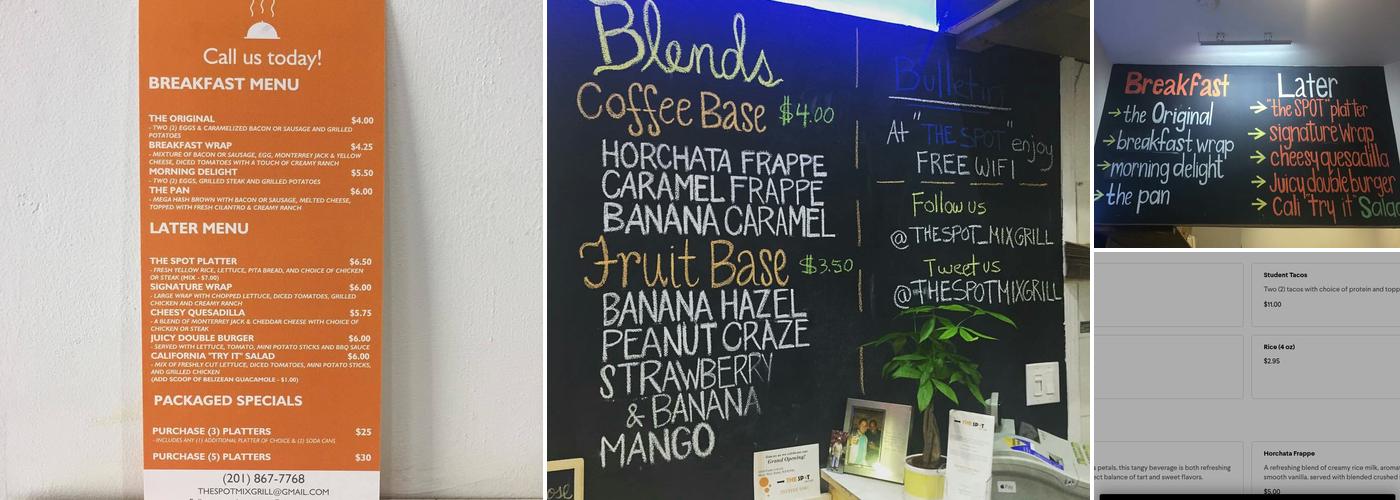 Call us today!
BREAKFAST MENU
THE ORIGINAL $4.00
- TWO (2) EGGS & CARAMELIZED BACON OR SAUSAGE AND GRILLED
POTATOES
BREAKFAST WRAP $4.25
- MIXTURE OF BACON OR SAUSAGE, EGG, MONTERREY JACK & YELLOW
CHEESE, DICED TOMATOES WITH A TOUCH OF CREAMY RANCH
MORNING DELIGHT $5.50
- TWO (2) EGGS, GRILLED STEAK AND GRILLED POTATOES
THE PAN $6.00
- MEGA HASH BROWN WITH BACON OR SAUSAGE, MELTED CHEESE,
TOPPED WITH FRESH CILANTRO & CREAMY RANCH
LATER MENU
THE SPOT PLATTER $6.50
- FRESH YELLOW RICE, LETTUCE, PITA BREAD, AND CHOICE OF CHICKEN
OR STEAK (MIX - $7.00)
SIGNATURE WRAP $6.00
- LARGE WRAP WITH CHOPPED LETTUCE, DICED TOMATOES, GRILLED
CHICKEN AND CREAMY RANCH
CHEESY QUESADILLA $5.75
- A BLEND OF MONTERREY JACK & CHEDDAR CHEESE WITH CHOICE OF
CHICKEN OR STEAK
JUICY DOUBLE BURGER $6.00
- SERVED WITH LETTUCE, TOMATO, MINI POTATO STICKS AND BBQ SAUCE
CALIFORNIA "TRY IT" SALAD $6.00
- MIX OF FRESHLY CUT LETTUCE, DICED TOMATOES, MINI POTATO STICKS,
AND GRILLED CHICKEN
(ADD SCOOP OF BELIZEAN GUACAMOLE - $1.00)
PACKAGED SPECIALS
PURCHASE (3) PLATTERS $25
- INCLUDES ANY (1) ADDITIONAL PLATTER OF CHOICE & (2) SODA CANS
PURCHASE (5) PLATTERS $30
(201) 867-7768
THESPOTMIXGRILL@GMAIL.COM
Blends
Coffee Base $4.00
HORCHATA FRAPPE
CARAMEL FRAPPE
BANANA CARAMEL
Fruit Base $3.50
BANANA HAZEL
PEANUT CRAZE
STRAWBERRY
& BANANA
MANGO
Bulletin
At "THE SPOT" enjoy
FREE WIFI
Follow us
@THESPOT_MIXGRILL
Tweet us
@THESPOTMIXGRILL
Grand Opening!
THE SPOT
THE SPOT
Breakfast
the Original
breakfast wrap
morning delight
the pan
Later
"the SPOT" platter
signature wrap
cheesy quesadilla
Juicy double burger
Cali "try it" Salad
Student Tacos
Two (2) tacos with choice of protein and topp
$11.00
Rice (4 oz)
$2.95
petals, this tangy beverage is both refreshing
ect balance of tart and sweet flavors.
Horchata Frappe
A refreshing blend of creamy rice milk, aroma
smooth vanilla, served with blended crushed
$5.00